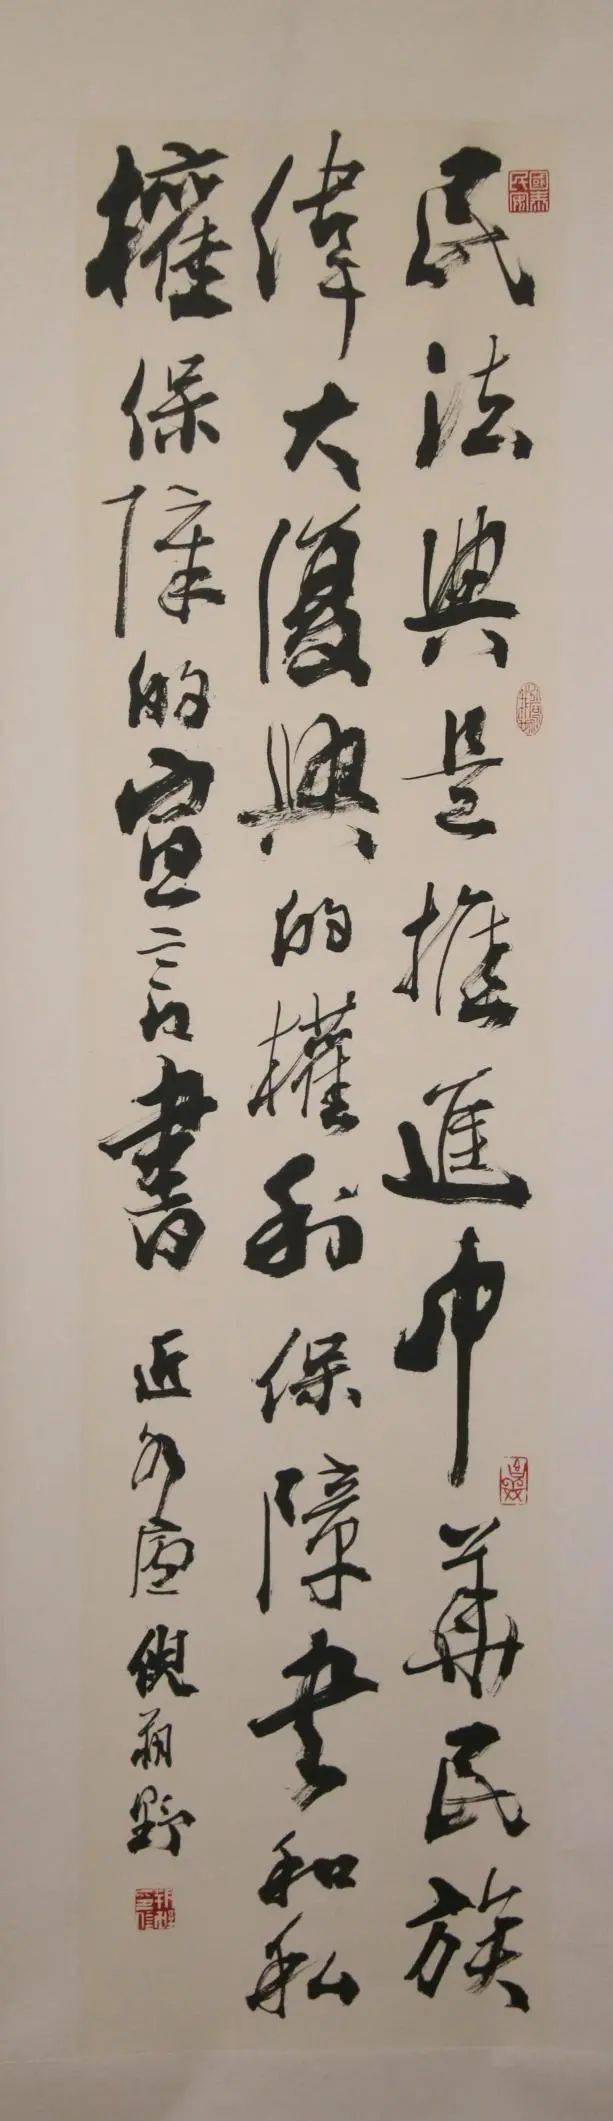 民法典是推進中華民族
偉大復興的權利保障書和私
權保障的宣言書
近水廬倪朔野